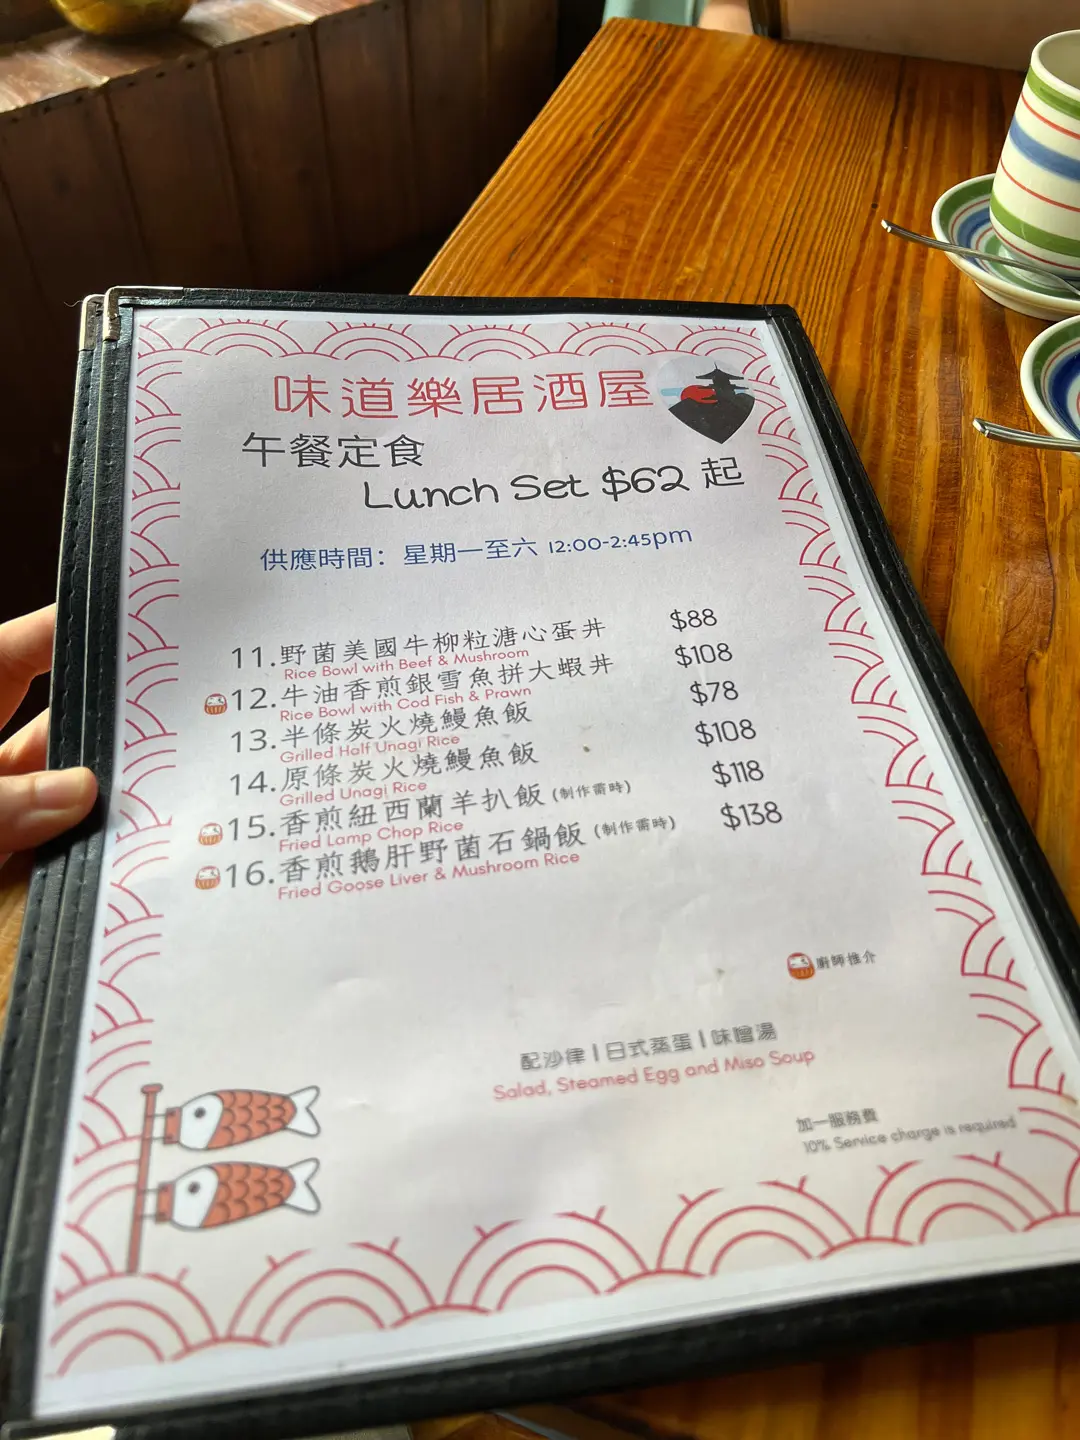 味道樂居酒屋
午餐定食
Lunch Set $62 起
供應時間：星期一至六 12:00-2:45pm
11.野菌美國牛柳粒溏心蛋丼 $88
Rice Bowl with Beef & Mushroom
12.牛油香煎銀雪魚拼大蝦丼 $108
Rice Bowl with Cod Fish & Prawn
13.半條炭火燒鰻魚飯 $78
Grilled Half Unagi Rice
14.原條炭火燒鰻魚飯 $108
Grilled Unagi Rice
15.香煎紐西蘭羊扒飯(制作需時) $118
Fried Lamp Chop Rice
16.香煎鵝肝野菌石鍋飯(制作需時) $138
Fried Goose Liver & Mushroom Rice
廚師推介
配沙律 | 日式蒸蛋 | 味噌湯
Salad, Steamed Egg and Miso Soup
加一服務費
10% Service charge is required